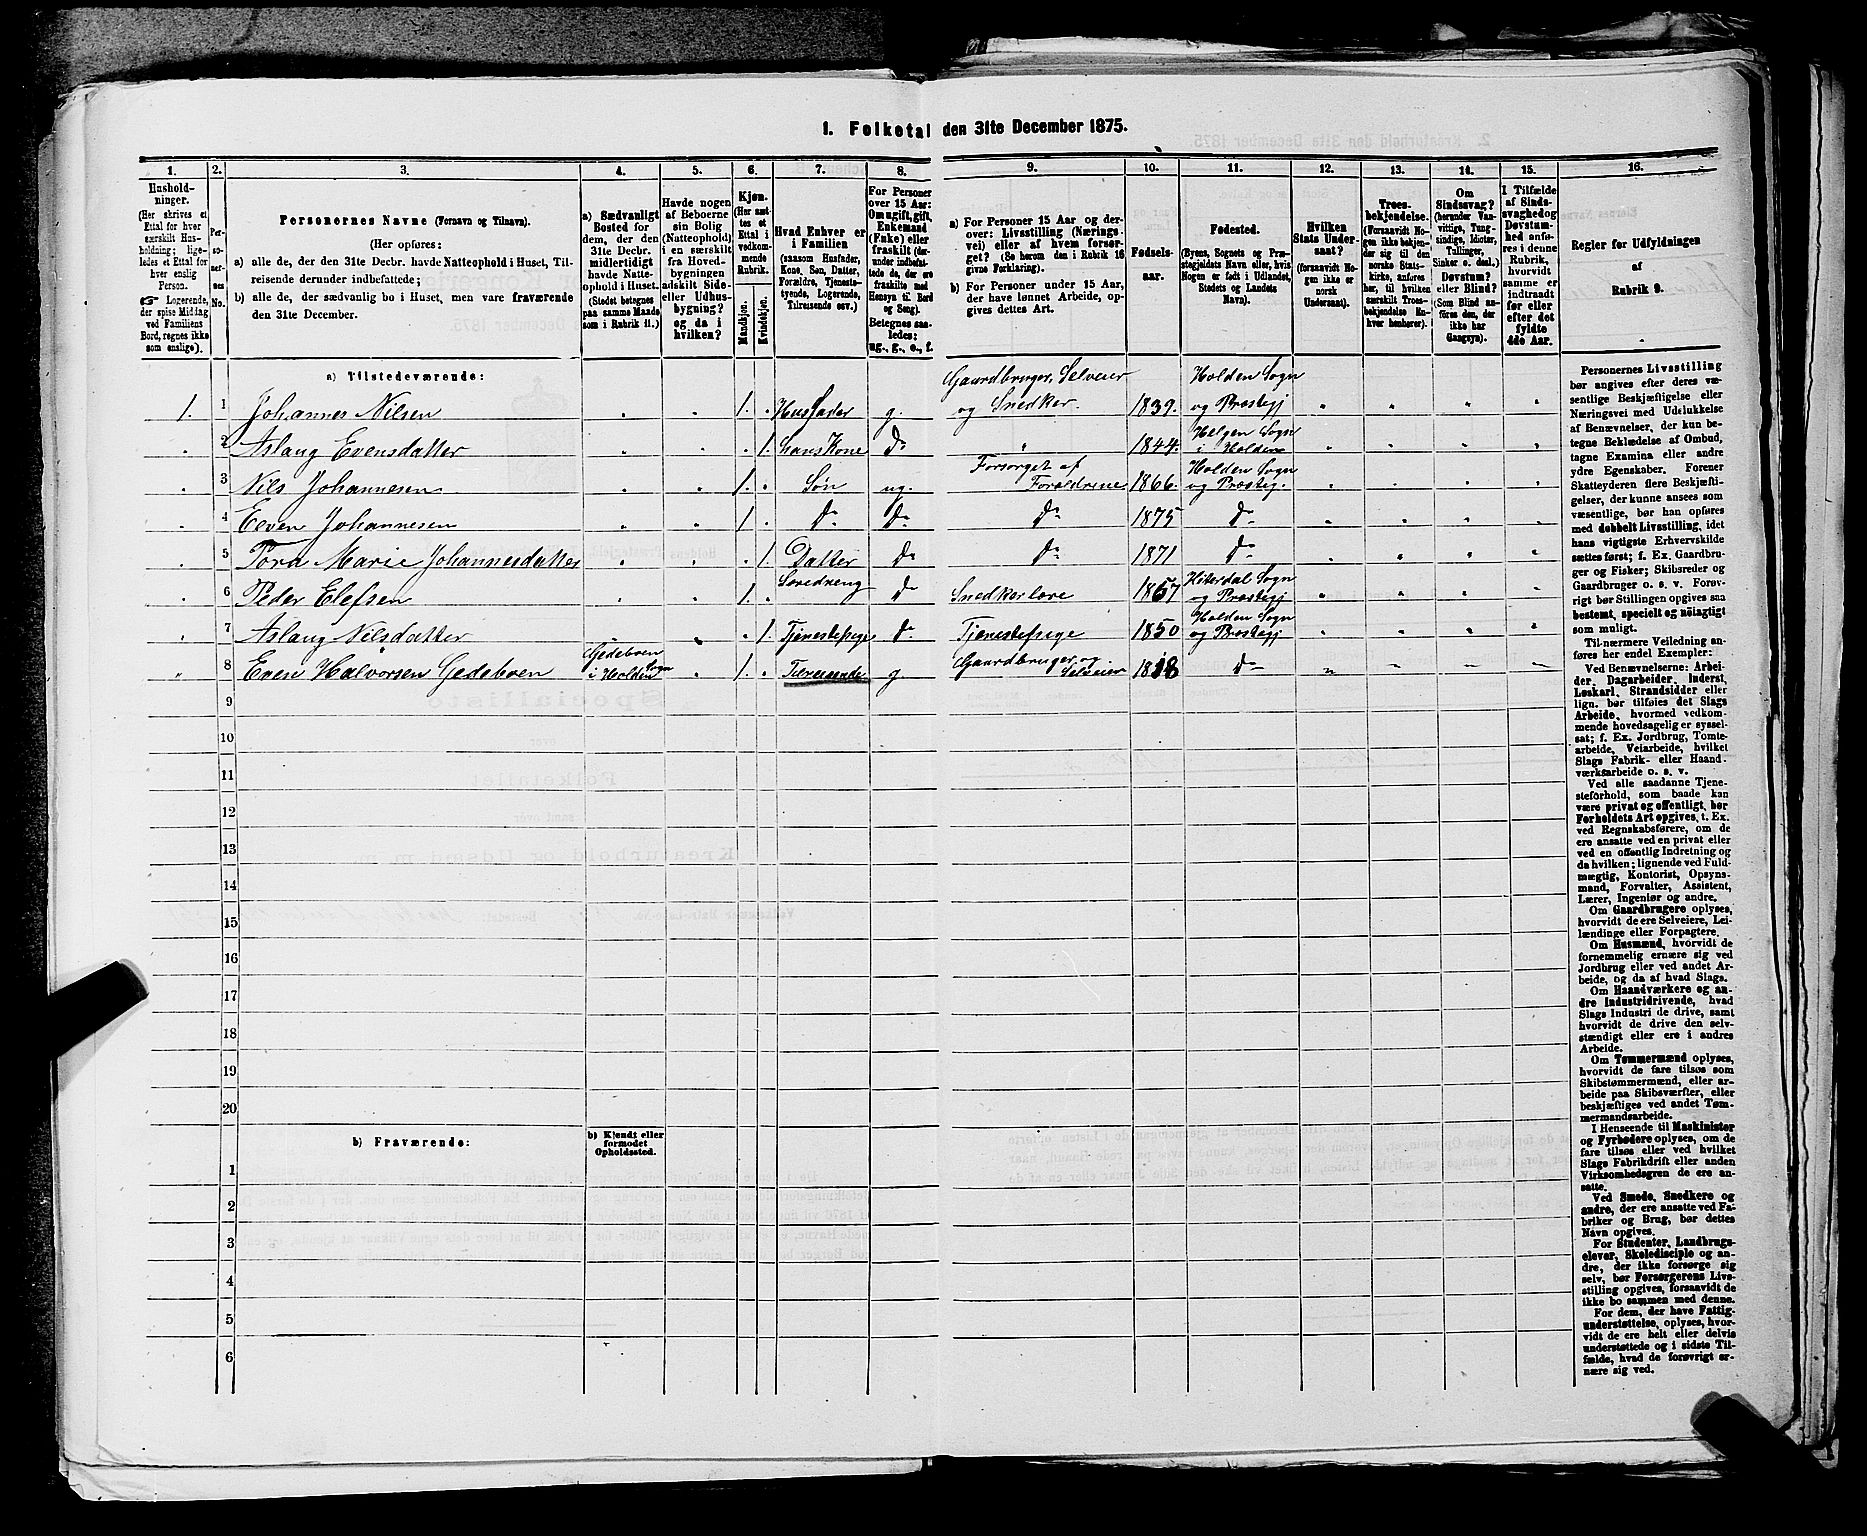 1. Folketal den 31te December 1875.
1.
Hushold-
ninger.
(Her skrives et
Ettal for hver
særskilt Hus-
holdning; lige-
ledes et Ettal for
hver enslig
Person.
☞ Logerende,
der spise Middag
ved Familiens
Bord, regnes ikke
som enslige).
2.
Per-
so-
ner-
nes
No.
3.
Personernes Navne (Fornavn og Tilnavn).
(Her opføres:
a) alle de, der den 31te Decbr. havde Natteophold i Huset, Til-
reisende derunder indbefattede;
b) alle de, der sædvanlig bo i Huset, men vare fraværende
den 31te December.
4.
a) Sædvanligt
Bosted for
dem, der den
31te Decbr.
midlertidigt
havde Natte-
ophold i Huset.
(Stedet betegnes
paa samme Maade
som i Rubrik 11.)
5.
Havde nogen
af Beboerne
sin Bolig
(Natteophold)
i en særskilt
fra Hoved-
bygningen
adskilt Side-
eller Udhus-
bygning?
og da i
hvilken?
6.
Kjøn.
(Her sæt-
tes et
Ettal i
vedkom-
mende
Rubrik.
Mandkjøn.
Kvindekjøn.
7.
Hvad Enhver er
i Familien
(saasom Husfader,
Kone, Søn, Datter,
Forældre, Tjeneste-
tyende, Logerende,
Tilreisende osv.)
8.
For Personer
over 15 Aar:
Om ugift, gift,
Enkemand
(Enke) eller
fraskilt (der-
under indbefat-
tede de, der ere
fraskilte med
Hensyn til Bord
og Seng).
Betegnes saa-
ledes:
ug., g., e., f.
9.
a) For Personer 15 Aar og der-
over: Livsstilling (Nærings-
vei) eller af hvem forsør-
get? (Se herom den i Rubrik 16
givne Forklaring).
b) For Personer under 15 Aar,
der have lønnet Arbeide, op-
gives dettes Art.
10.
Fødsels-
aar.
11.
Fødested.
(Byens, Sognets og Præ-
stegjeldets Navn eller, hvis
Nogen er født i Udlandet,
Stedets og Landets
Navn).
12.
Hvilken
Stats Under-
saat?
(forsaavidt No-
gen ikke er
norsk
Undersaat).
13.
Troes-
bekjendelse.
(Forsaavidt No-
gen ikke bekjen-
der sig til den
norske Stats-
kirke, anføres
her, til hvilken
særskilt Troes-
bekjendelse En-
hver henhører).
14.
Om
Sindssvag?
(herunder Van-
vittige, Tung-
sindige, Idioter,
Tullinger,
Sinker o. desl.).
Døvstum?
eller Blind?
(Som Blind an-
føres den, der
ikke har
Gangsyn).
15.
I Tilfælde
af Sinds-
svaghed og
Døvstum-
hed anfø-
res i denne
Rubrik,
hvorvidt
samme er
indtraadt
før eller
efter det
fyldte
4de Aar.
16.
Regler for Udfyldningen
af
Rubrik 9.
a) Tilstedeværende:
1. 1 Johannes Nilsen „ „ 1. „ Husfader g. Gaardbruger, Selveier og Snedker. 1839. Holden Sogn og Prostegj „ „ „ „
„ 2 Aslaug Evensdatter „ „ „ 1. hans Kone do „ 1844. Helgen Sogn i Holden „ „ „ „
„ 3 Nils Johannesen „ „ 1. „ Søn ug. Forsørget af Foraldrene 1866. Holden Sogn og Prosteg. „ „ „ „
„ 4 Even Johannesen „ „ 1 „ do do do 1875 do „ „ „ „
„ 5 Tora Marie Johannesdatter „ „ „ 1. Datter do do 1871 do „ „ „ „
„ 6 Peder Elefsen „ „ 1. „ Læredreng do Snedkerlære 1857 Hiterdal Sogn og Prostegj „ „ „ „
„ 7 Aslaug Nilsdatter „ „ „ 1. Tjenestepige do. Tjenestepige 1850 Holden Sogn og Prostegj „ „ „ „
„ 8 Even Halvorsen Gedeboen Gedeboen i Holden Sogn „ 1. „ Tilreisende g Gaardbruger og Selveier 1818 do „ „ „ „
9
10
11
12
13
14
15
16
17
18
19
20
b) Fraværende:
b) Kjendt eller
formodet
Opholdssted.
1
2
3
4
5
6
Personernes Livsstilling
bør angives efter deres væ-
sentlige Beskjæftigelse eller
Næringsvei med Udelukkelse
af Benævnelser, der kun be-
tegne Beklædelse af Ombud,
tagne Examina eller andre
ydre Egenskaber. Forener
Skatteyderen flere Beskjæfti-
gelser, der kunne ansees som
væsentlige, bør han opføres
med dobbelt Livsstilling, idet
hans vigtigste Erhvervskilde
sættes først; f. Ex. Gaardbru-
ger og Fisker; Skibsreder og
Gaardbruger o. s. v. Forøv-
rigt bør Stillingen opgives saa
bestemt, specielt og nøiagtigt
som muligt.
Til nærmere Veiledning an-
føres her endel Exempler:
Ved Benævnelserne: Arbei-
der, Dagarbeider, Inderst,
Løskarl, Strandsidder eller
lign. bør tilføies det Slags
Arbeide, hvormed vedkom-
mende hovedsagelig er syssel-
sat; f. Ex. Jordbrug, Tomte-
arbeide, Veiarbeide, hvilket
Slags Fabrik- eller Haand-
værksarbeide o. s. v.
Ved alle saadanne Tjene-
steforhold, som baade kan
være privat og offentligt, bør
Forholdets Art opgives, t. Ex.
ved Regnskabsførere, om de
ere ansatte ved en privat eller
ved en offentlig Indretning og
da hvilken; lignende ved Fuld-
mægtig, Kontorist, Opsyns-
mand, Forvalter, Assistent,
Lærer, Ingeniør og andre.
Om Gaardbrugere oplyses,
hvorvidt de ere Selveiere, Lei-
lændinge eller Forpagtere.
Om Husmænd, hvorvidt de
fornemmelig ernære sig ved
Jordbrug eller ved andet Ar-
beide, og da af hvad Slags.
Om Haandværkere og an-
dre Industridrivende, hvad
Slags Industri de drive, samt
hvorvidt de drive den selv-
stændigt eller ere i andres
Arbeide.
Om Tømmermænd oplyses,
hvorvidt de fare tilsøs som
Skibstømmermænd, eller ar-
beide paa Skibsværfter, eller
beskjæftiges ved andet Tøm-
mermandsarbeide.
I Henseende til Maskinister
og Fyrbødere oplyses, om de
fare tilsøs eller ved hvilket
Slags Fabrikdrift eller anden
Virksombedsgren de ere an-
satte.
Ved Smede, Snedkere og
andre, der ere ansatte ved Fa-
briker og Brug, bør dettes
Navn opgives.
For Studenter, Landbrugs-
elever, Skoledisciple og an-
dre, der ikke forsørge sig
selv, bør Forsørgerens Livs-
stilling opgives, forsaavidt de
ikke bo sammen med denne.
For dem, der have Fattig-
understøttelse, oplyses, hvor-
vidt de ere helt eller delvis
understøttede og i sidste Til-
fælde, hvad de forøvrigt er-
nære sig ved.